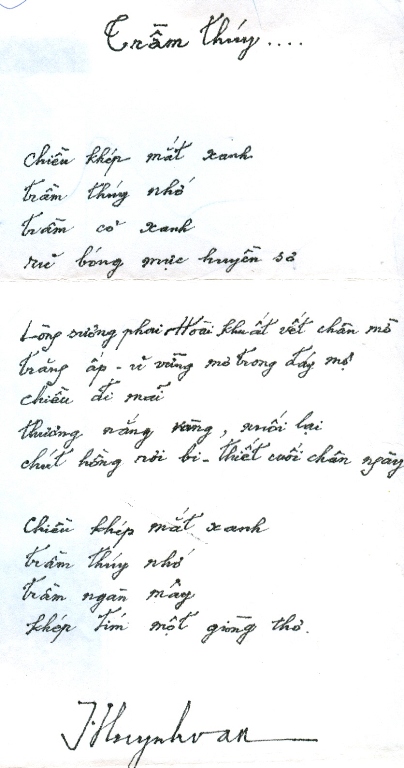 Trầm thúy....
Chiều khép mắt xanh
trầm thúy nhớ
trầm cỏ xanh
rủ bóng mực huyền sơ
Lòng sương phơi Hoài khuất vết chân mờ
trăng ấp-ủ vừng mơ trong đáy mộ
chiều đi mãi
thương nắng vàng, nuối lại
chút hồng rơi bi-thiết cuối chân ngày
Chiều khép mắt xanh
trầm thúy nhớ
trầm ngàn mây
khép tím một giòng thơ.